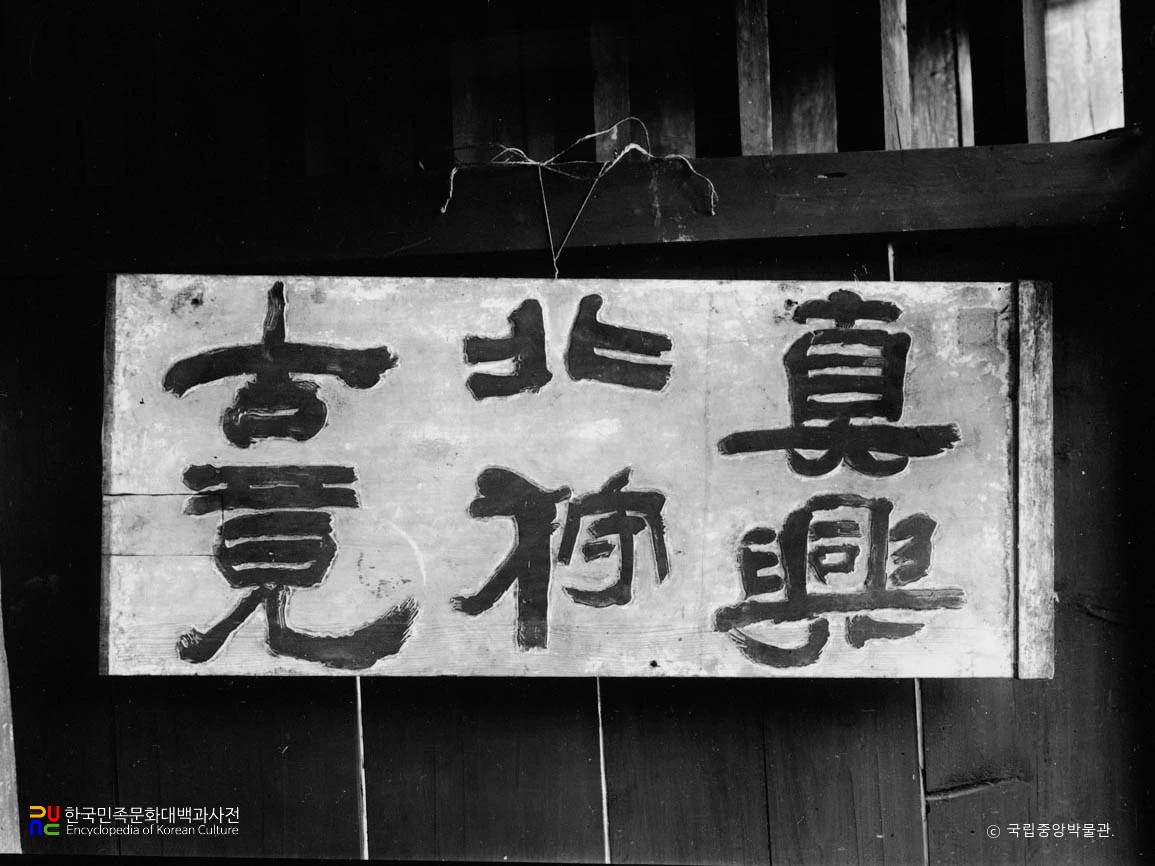 真興
北狩
古竟
한국민족문화대백과사전
Encyclopedia of Korean Culture
© 국립중앙박물관.